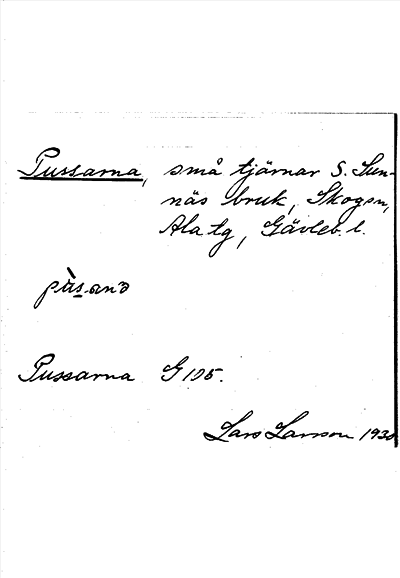 Pussarna, små tjärnar S. Sun-
näs bruk, Skogen,
Ala tg, Gävleb. l.
pùs.anə
Pussarna G 105.
Lars Larsson 1930